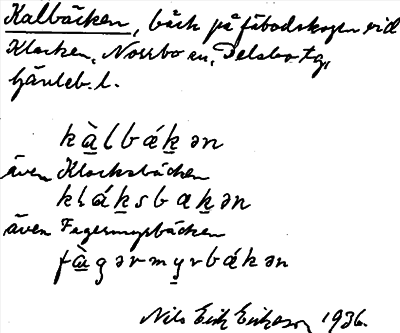 Kalbäcken, bäck på fäbodskogen vid
Klacken, Norrbo sn, Delsbo tg,
Gävleb. l.
kàlbákən
även Klacksbäcken
kláksbakən
även Fagermyrbäcken
fàgərmyrbákən
Nils Erik Eriksson 1936.